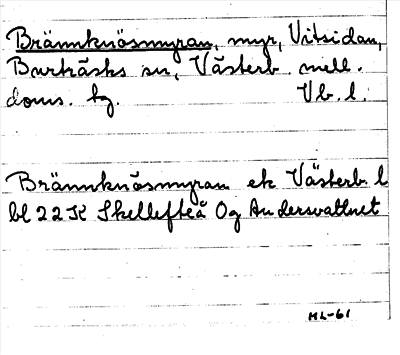 Brännknösmyran, myr, Vitsidan,
Burträsks sn, Västerb. mell.
doms. hg. Vb. l.
Brännknösmyran ek Västerb l
bl 22 K Skellefteå Og Andersvattnet
ML-61